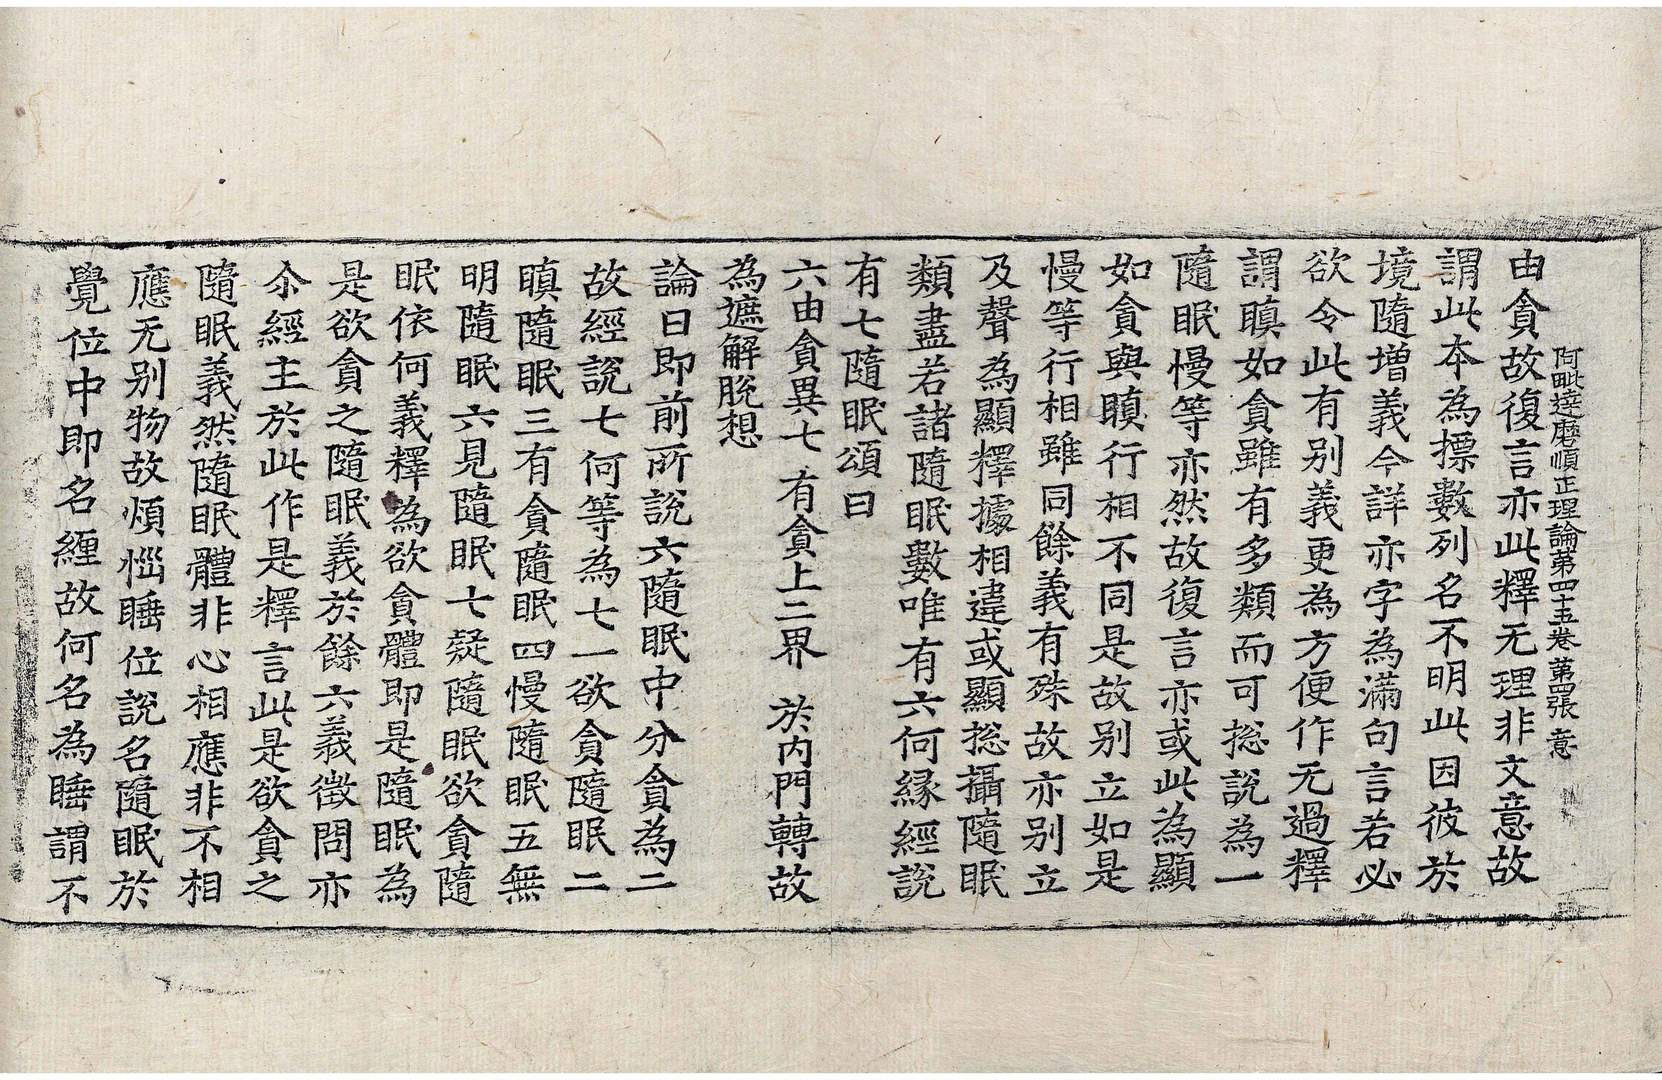 阿毗達磨順正理論第四十五卷 第四張 意
由貪故復言亦此釋无理非文意故
謂此本為摽數列名不明此因彼於
境隨增義今詳亦字為滿句言若必
欲令此有別義更為方便作无過釋
謂瞋如貪雖有多類而可捴說為一
隨眠慢等亦然故復言亦或此為顯
如貪與瞋行相不同是故別立如是
慢等行相雖同餘義有殊故亦別立
及聲為顯釋據相違或顯捴攝隨眠
類盡若諸隨眠數唯有六何緣經說
有七隨眠頌曰
六由貪異七 有貪上二界 於內門轉故
為遮解脫想
論曰即前所說六隨眠中分貪為二
故經說七何等為七一欲貪隨眠二
瞋隨眠三有貪隨眠四慢隨眠五無
明隨眠六見隨眠七疑隨眠欲貪隨
眠依何義釋為欲貪體即是隨眠為
是欲貪之隨眠義於餘六義徵問亦
尒經主於此作是釋言此是欲貪之
隨眠義然隨眠體非心相應非不相
應无別物故煩惱睡位說名隨眠於
覺位中即名纏故何名為睡謂不